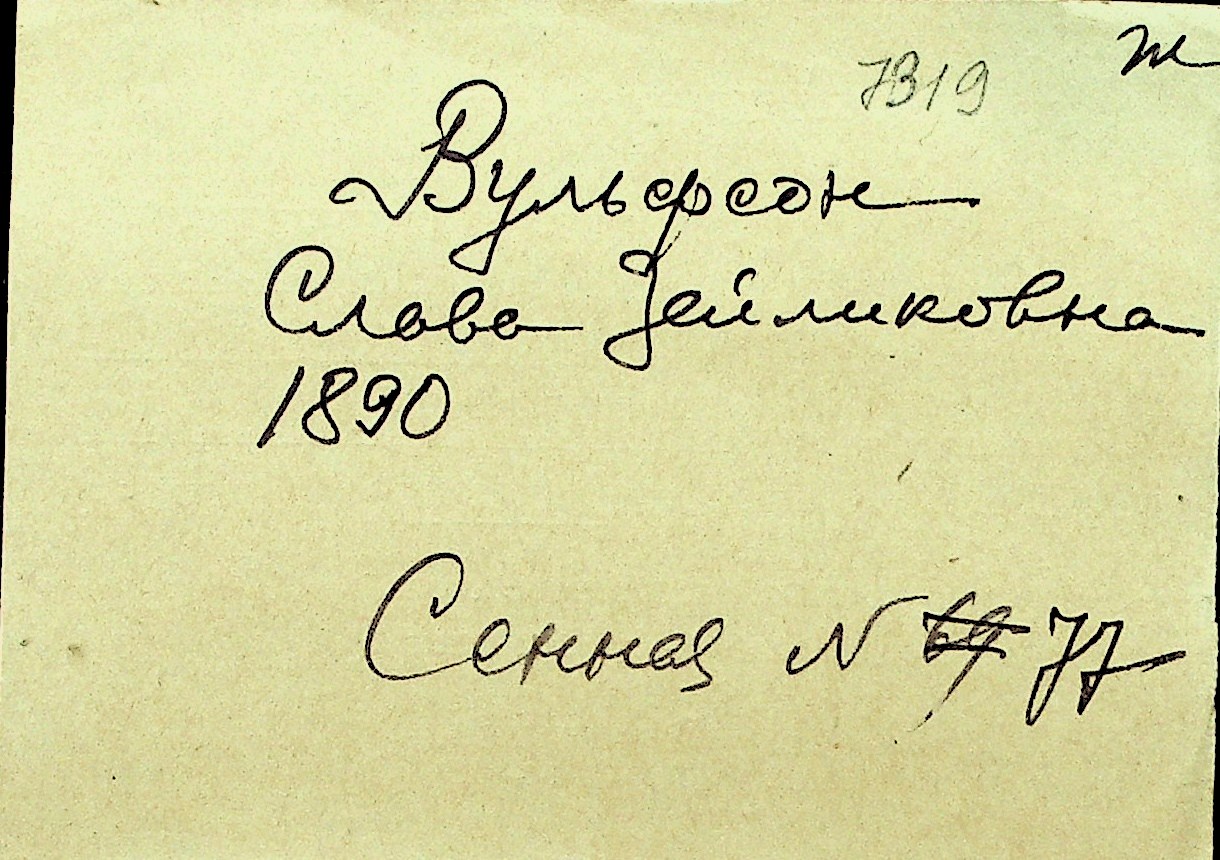 7319 т
Вульфсон
Слава Зейликовна
1890
Сенная N 77